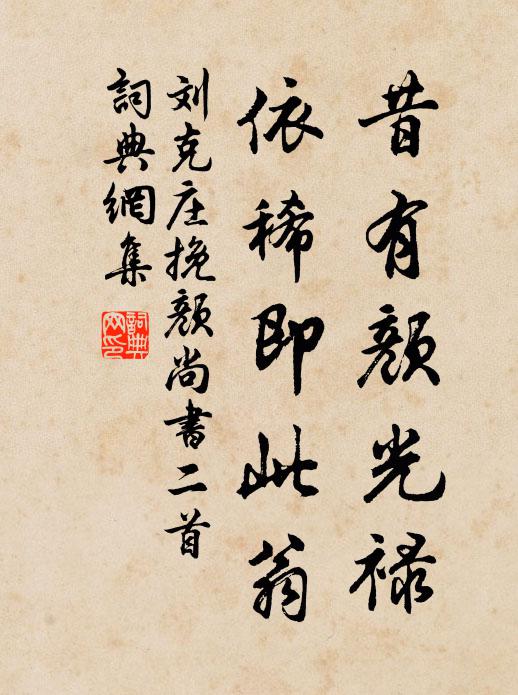 昔有颜光禄
依稀即此翁
刘克庄挽颜尚書二首
詞典網集
詞典网印